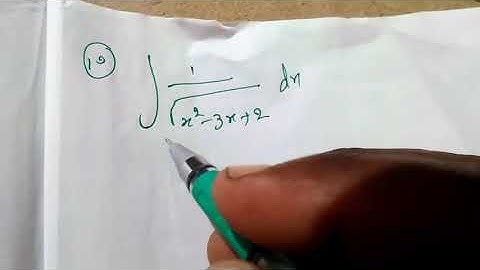 19) ∫ 1/√(x²-3x+2) dx